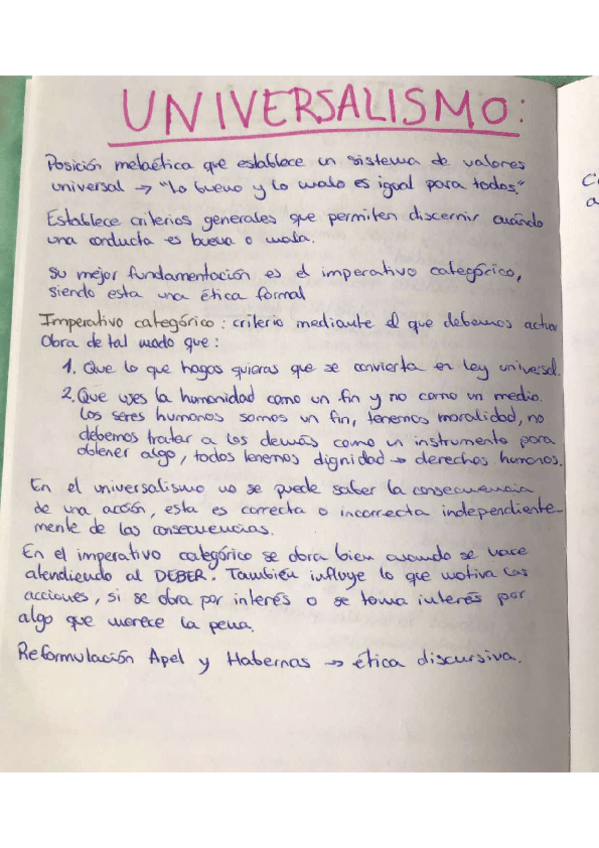 UNIVERSALISMO:
Posición metaética que establece un sistema de valores
universal → "Lo bueno y lo malo es igual para todos."
Establece criterios generales que permiten discernir cuándo
una conducta es buena o mala.
Su mejor fundamentación es el imperativo categórico,
siendo esta una ética formal
Imperativo categórico: criterio mediante el que debemos actuar
Obra de tal modo que:
1. Que lo que hagas quieras que se convierta en ley universal.
2. Que uses la humanidad como un fin y no como un medio.
Los seres humanos somos un fin, tenemos moralidad, no
debemos tratar a los demás como un instrumento para
obtener algo, todos tenemos dignidad → derechos humanos.
En el universalismo no se puede saber la consecuencia
de una acción, esta es correcta o incorrecta independiente-
mente de las consecuencias.
En el imperativo categórico se obra bien cuando se hace
atendiendo al DEBER. También influye lo que motiva las
acciones, si se obra por interés o se toma interés por
algo que merece la pena.
Reformulación Apel y Habernas → ética discursiva.